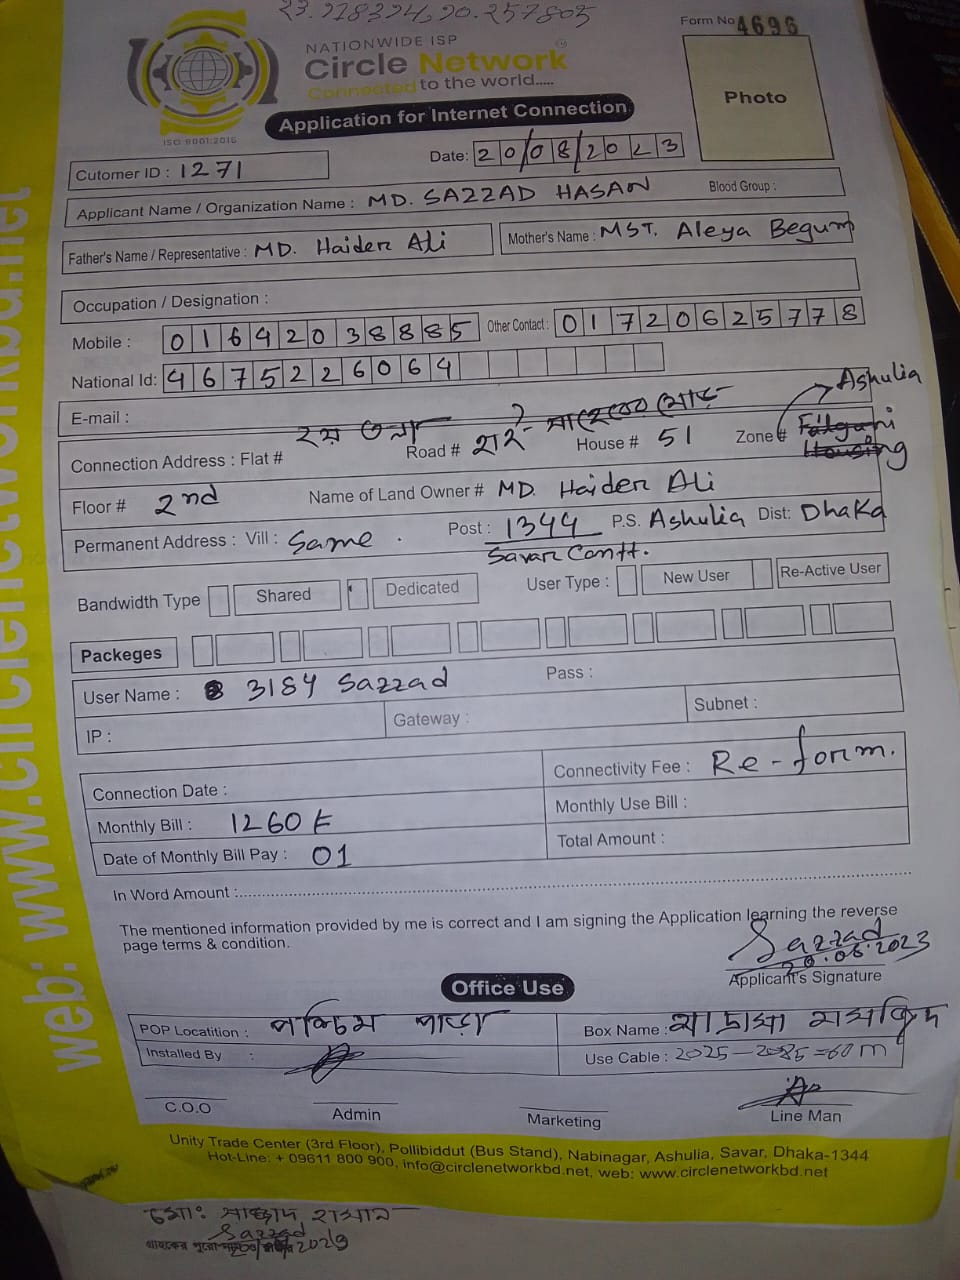 23.918324,90.257805
Form No 4696
NATIONWIDE ISP
Circle Network
Connected to the world.....
ISO 9001:2015
Photo
Application for Internet Connection
Date: 20/08/2023
Cutomer ID : 1271
Applicant Name / Organization Name : MD. SAZZAD HASAN Blood Group :
Father's Name / Representative : MD. Haider Ali Mother's Name : MST. Aleya Begum
Occupation / Designation :
Mobile : 01642038885 Other Contact : 01720625778
National Id: 4675226064
E-mail :
Ashulia
Connection Address : Flat # ২য় তলা Road # House # 51 Zone # Housing
Floor # 2nd Name of Land Owner # MD. Haider Ali
Permanent Address : Vill : Same . Post : 1344 P.S. Ashulia Dist: Dhaka
Savar Cantt.
Bandwidth Type Shared Dedicated User Type : New User Re-Active User
Packeges
User Name : 3184 Sazzad Pass :
IP : Gateway : Subnet :
Connection Date : Connectivity Fee : Re-form.
Monthly Bill : 1260 Monthly Use Bill :
Date of Monthly Bill Pay : 01 Total Amount :
In Word Amount :
The mentioned information provided by me is correct and I am signing the Application learning the reverse
page terms & condition.
Sazzad
20.08.2023
Applicant's Signature
Office Use
POP Locatition : পশ্চিম পাড়া Box Name : মাদ্রাসা মসজিদ
Installed By : Use Cable : 2025-2085=60m
C.O.O Admin Marketing Line Man
Unity Trade Center (3rd Floor), Pollibiddut (Bus Stand), Nabinagar, Ashulia, Savar, Dhaka-1344
Hot-Line: + 09611 800 900, info@circlenetworkbd.net, web: www.circlenetworkbd.net
web: www.circlenetworkbd.net
মোঃ সাজ্জাদ হাসান
Sazzad